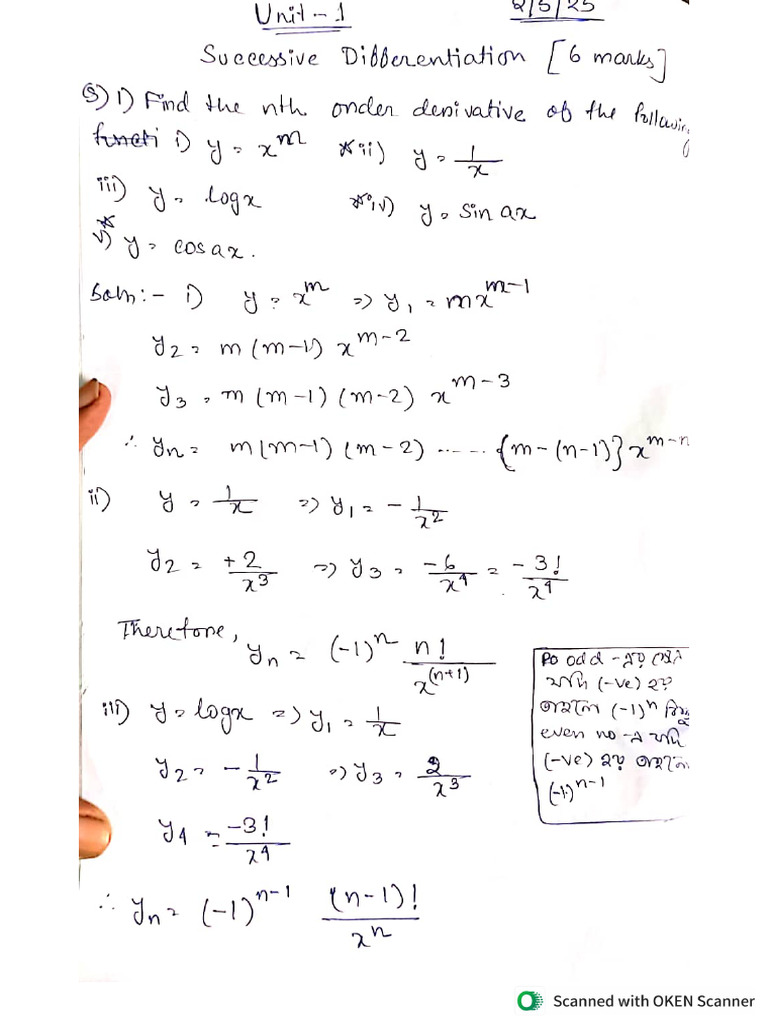 Unit-1
2/5/25
Successive Differentiation [6 marks]
Q) 1) Find the nth order derivative of the following
functi i) y = x^m *ii) y = 1/x
iii) y = logx *iv) y = sin ax
*v) y = cosax.
Soln:- i) y = x^m => y₁ = mx^(m-1)
y₂ = m(m-1) x^(m-2)
y₃ = m(m-1)(m-2) x^(m-3)
∴ yn = m(m-1)(m-2) ...... {m-(n-1)} x^(m-n)
ii) y = 1/x => y₁ = -1/x²
y₂ = +2/x³ => y₃ = -6/x⁴ = -3!/x⁴
Therefore, yn = (-1)^n n!/x^(n+1)
odd -এর
যদি (-ve) হয়
তাহলে (-1)^n
even no -এ যদি
(-ve) হয়
(-1)^(n-1)
iii) y = logx => y₁ = 1/x
y₂ = -1/x² => y₃ = 2/x³
y₄ = -3!/x⁴
∴ yn = (-1)^(n-1) (n-1)!/x^n
Scanned with OKEN Scanner